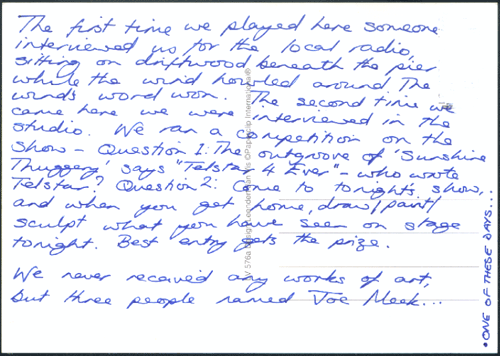 The first time we played here someone
interviewed us for the local radio,
sitting on driftwood beneath the pier
while the wind howled around. The
wind's word won. The second time we
came here we were interviewed in the
studio. We ran a competition on the
show - Question 1: The outgroove of 'Sunshine
Thuggery' says "Telstar 4 Ever" - who wrote
Telstar? Question 2: Come to tonight's show,
and when you get home, draw/paint/
sculpt what you have seen on stage
tonight. Best entry gets the prize.
We never received any works of art,
but three people named Joe Meek...
• ONE OF THESE DAYS...